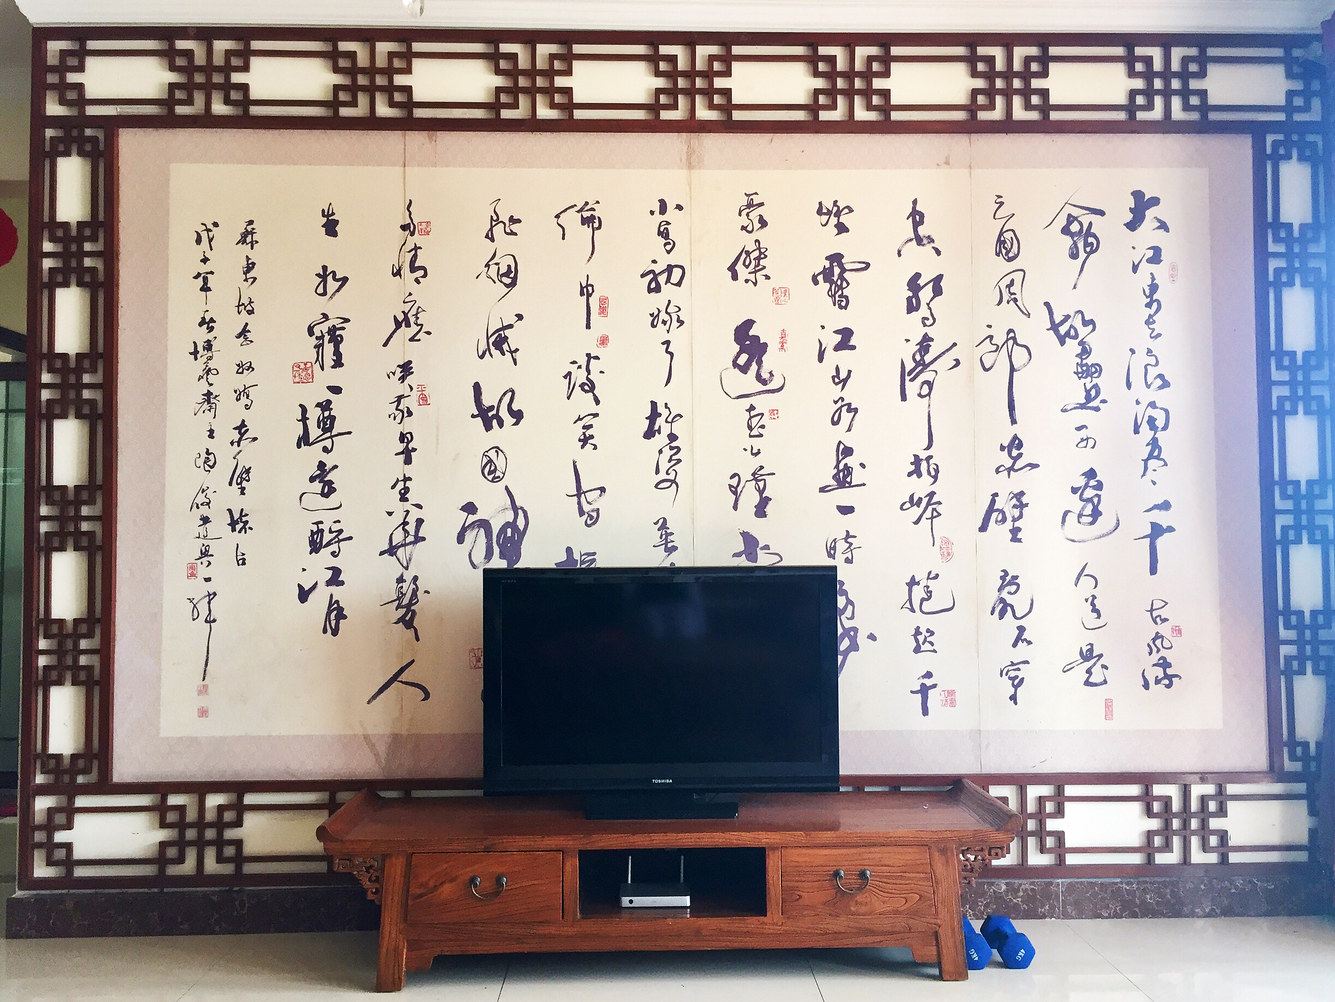 大江東去浪淘盡千古風流
人物故壘西邊人道是
三國周郎赤壁亂石穿
空驚濤拍岸捲起千
堆雪江山如畫一時多少
豪傑遙想公瑾當
小喬初嫁了雄姿英
綸巾談笑間檣
煙滅故國神
多情應笑我早生華髮人
生如一樽還酹江月
蘇東坡念奴嬌赤壁懷古
戊子年 博 齋主陶
TOSHIBA
4KG
4KG